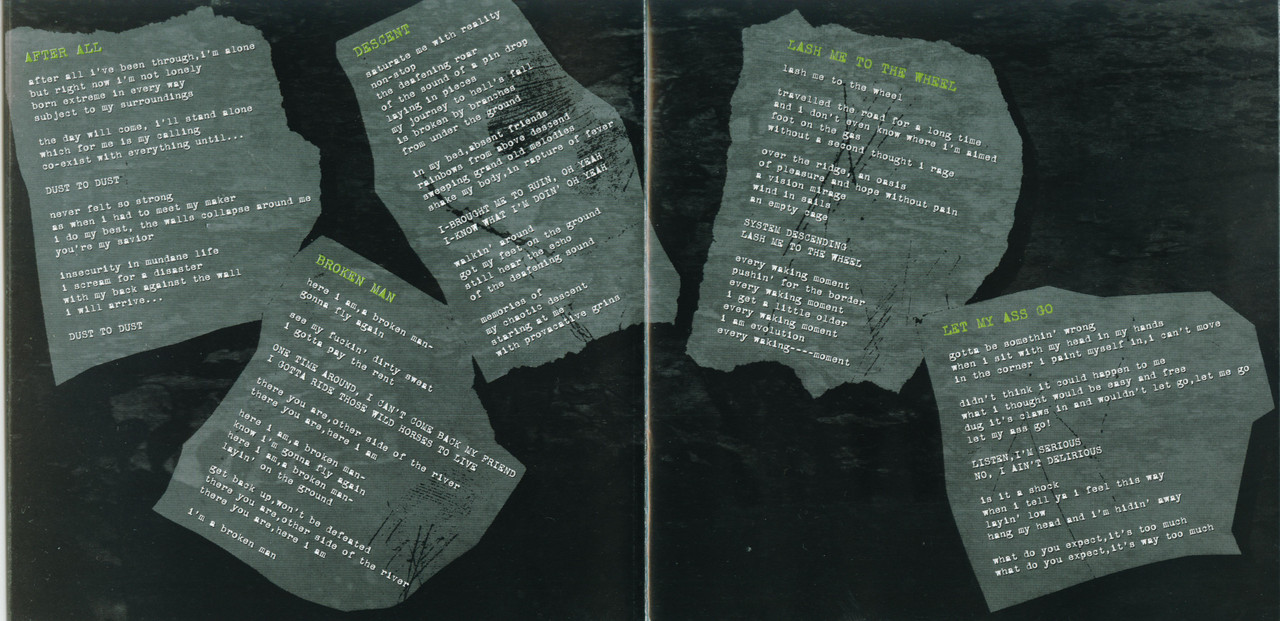 AFTER ALL
after all i've been through,i'm alone
but right now i'm not lonely
born extreme in every way
subject to my surroundings
the day will come, i'll stand alone
which for me is my calling
co-exist with everything until...
DUST TO DUST
never felt so strong
as when i had to meet my maker
i do my best, the walls collapse around me
you're my savior
insecurity in mundane life
i scream for a disaster
with my back against the wall
i will arrive...
DUST TO DUST
DESCENT
saturate me with reality
non-stop
the deafening roar
of the sound of a pin drop
laying in pieces
my journey to hell's fall
is broken by branches
from under the ground
in my bed,absent friends
rainbows from above descend
sweeping grand old melodies
shake my body,in rapture of fever
I-BROUGHT ME TO RUIN, OH YEAH
I-KNOW WHAT I'M DOIN' OH YEAH
walkin' around
got my feet on the ground
still hear the echo
of the deafening sound
memories of
my chaotic descent
staring at me
with provacative grins
BROKEN MAN
here i am,a broken man-
gonna fly again
see my fuckin' dirty sweat
i gotta pay the rent
ONE TIME AROUND, I CAN'T COME BACK MY FRIEND
I GOTTA RIDE THOSE WILD HORSES TO LIVE
there you are,other side of the river
there you are,here i am
here i am,a broken man-
know i'm gonna fly again
here i am,a broken man-
layin' on the ground
get back up,won't be defeated
there you are,other side of the river
there you are,here i am
i'm a broken man
LASH ME TO THE WHEEL
lash me to the wheel
travelled the road for a long time
and i don't even know where i'm aimed
foot on the gas
without a second thought i rage
over the ridge, an oasis
of pleasure and hope without pain
a vision mirage
wind in sails
an empty cage
SYSTEM DESCENDING
LASH ME TO THE WHEEL
every waking moment
pushin' for the border
every waking moment
i get a little older
every waking moment
i am evolution
every waking----moment
LET MY ASS GO
gotta be somethin' wrong
when i sit with my head in my hands
in the corner i paint myself in,i can't move
didn't think it could happen to me
what i thought would be easy and free
dug it's claws in and wouldn't let go,let me go
let my ass go!
LISTEN,I'M SERIOUS
NO, I AIN'T DELIRIOUS
is it a shock
when i tell ya i feel this way
layin' low
hang my head and i'm hidin' away
what do you expect,it's too much
what do you expect,it's way too much